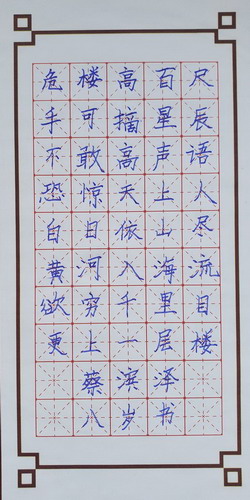 危楼高百尺
手可摘星辰
不敢高声语
恐惊天上人
白日依山尽
黄河入海流
欲穷千里目
更上一层楼
蔡滨泽
八岁书